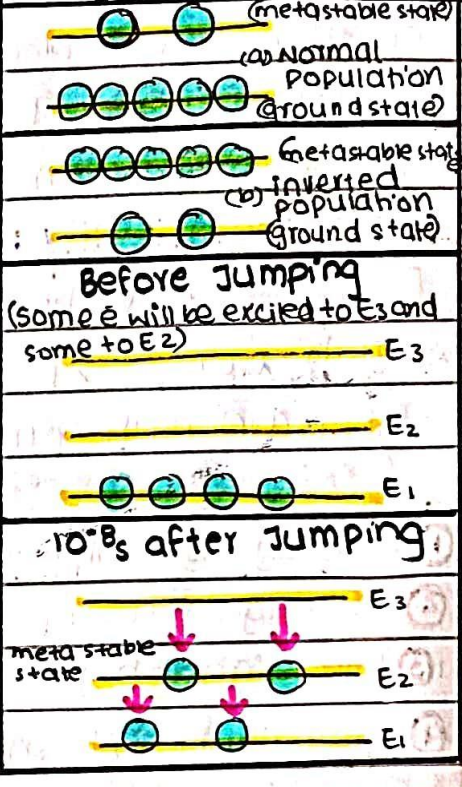 (metastable state)
(a) Normal
population
(ground state)
(metastable state
(b) inverted
population
(ground state)
Before Jumping
(some ē will be excited to E3 and
some to E2)
E3
E2
E1
10⁻⁸s after Jumping
E3
meta stable
state
E2
E1